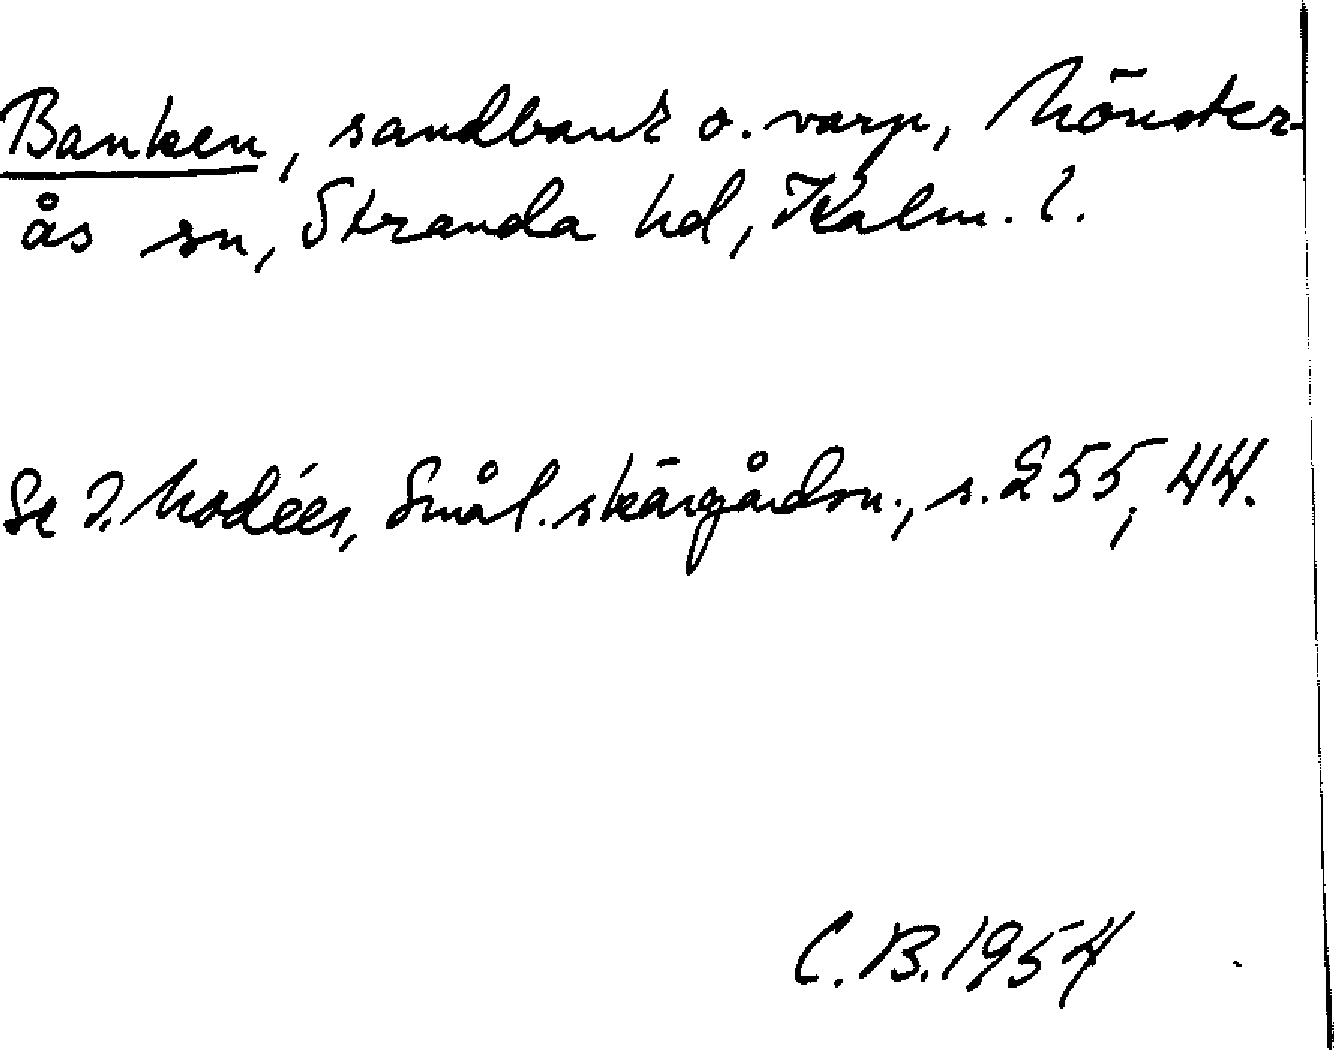 Banken, sandbank o. varp, Mönster-
ås sn, Stranda hd, Kalm. l.
Se I. Modéer, Smål. skärgårdsn., s. 255, 44.
C. B. 1954